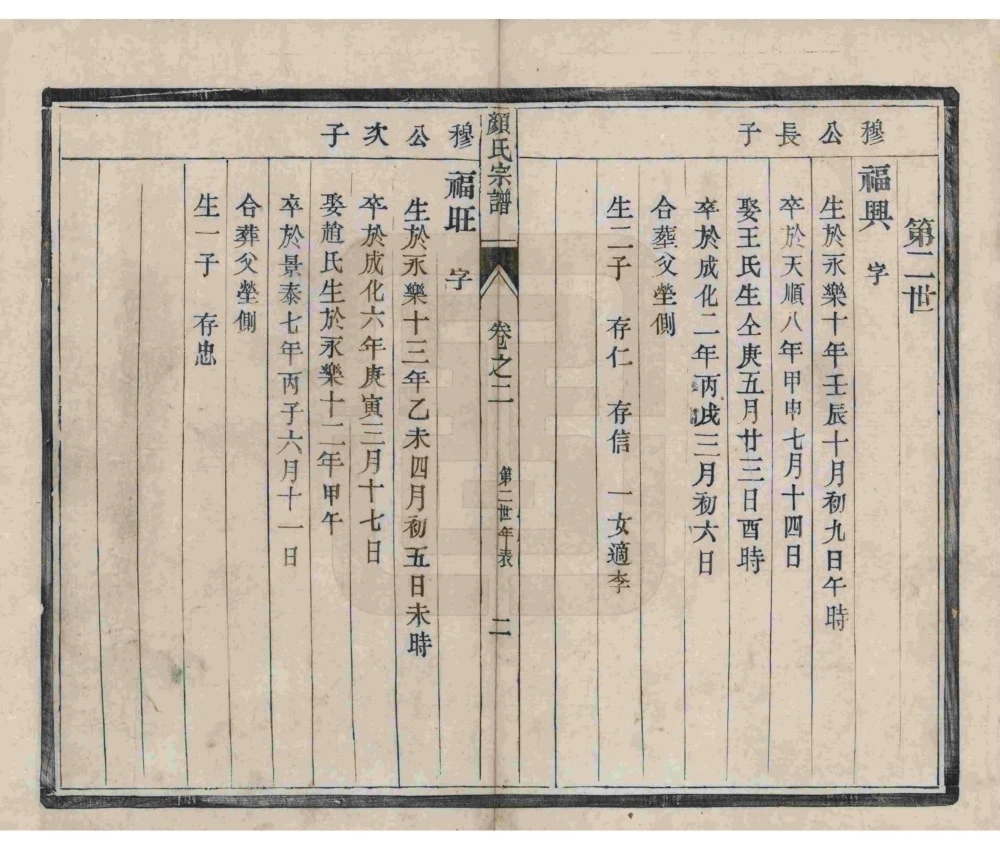 第二世
穆公長子
福興 字
生於永樂十年壬辰十月初九日午時
卒於天順八年甲申七月十四日
娶王氏生仝庚五月廿三日酉時
卒於成化二年丙戌三月初六日
合葬父塋側
生二子 存仁 存信 一女適李
顏氏宗譜 卷之二 第二世年表 二
穆公次子
福旺 字
生於永樂十三年乙未四月初五日未時
卒於成化六年庚寅三月十七日
娶趙氏生於永樂十二年甲午
卒於景泰七年丙子六月十一日
合葬父塋側
生一子 存忠